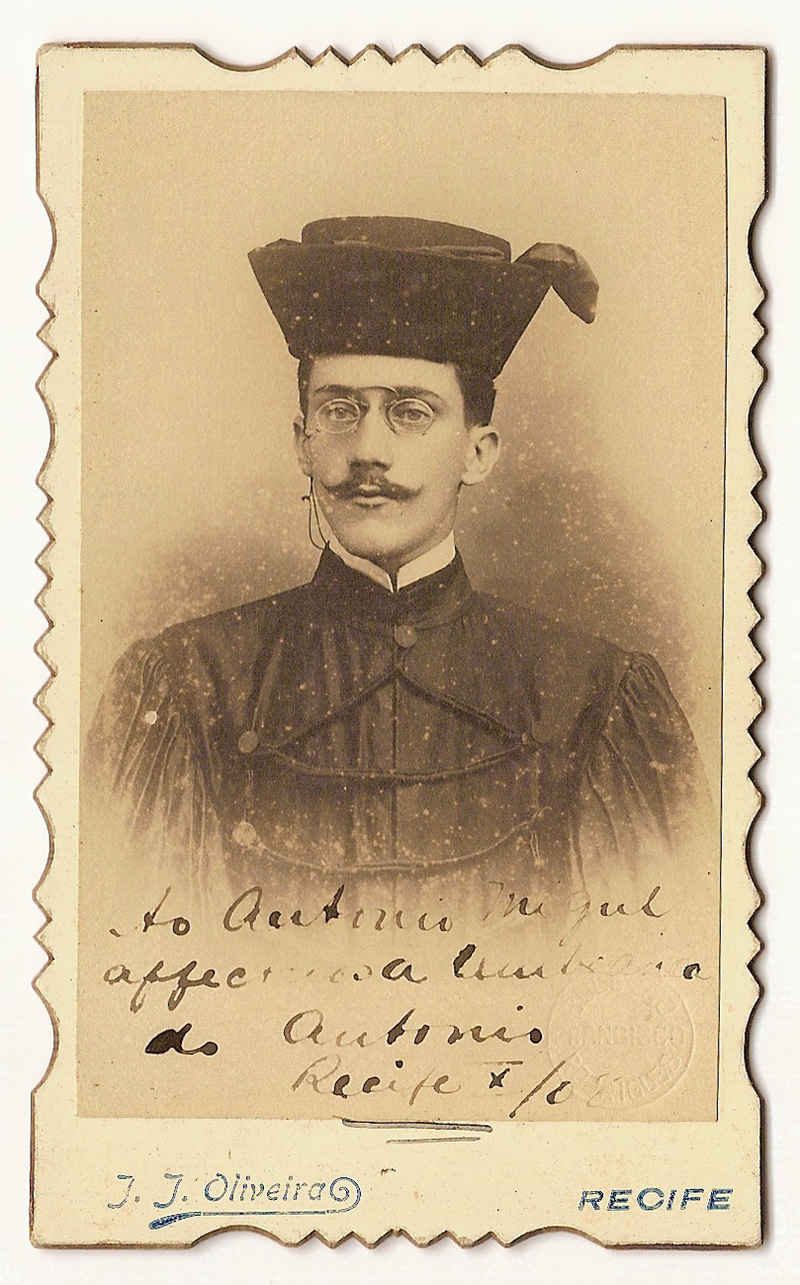 Ao Antonio Miguel
affectuosa lembrança
do Antonio
Recife X/0
J. J. Oliveira
RECIFE